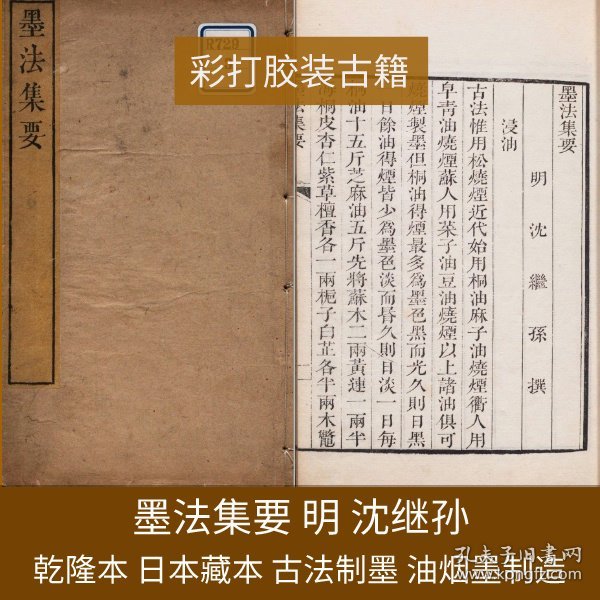 彩打胶装古籍
R729
墨法集要
墨法集要
明沈繼孫撰
浸油
古法惟用松燒煙近代始用桐油麻子油燒煙衢人用
皁靑油燒煙蘇人用菜子油豆油燒煙以上諸油俱可
燒煙製墨但桐油得煙最多爲墨色黑而光久則日黑
日餘油得煙皆少爲墨色淡而昏久則日淡一日每
桐油十五斤芝麻油五斤先將蘇木二兩黃連一兩半
海桐皮杏仁紫草檀香各一兩梔子白芷各半兩木鼈
墨法集要
墨法集要 明 沈继孙
乾隆本 日本藏本 古法制墨 油烟墨制造
孔夫子旧书网
www.kongfz.com